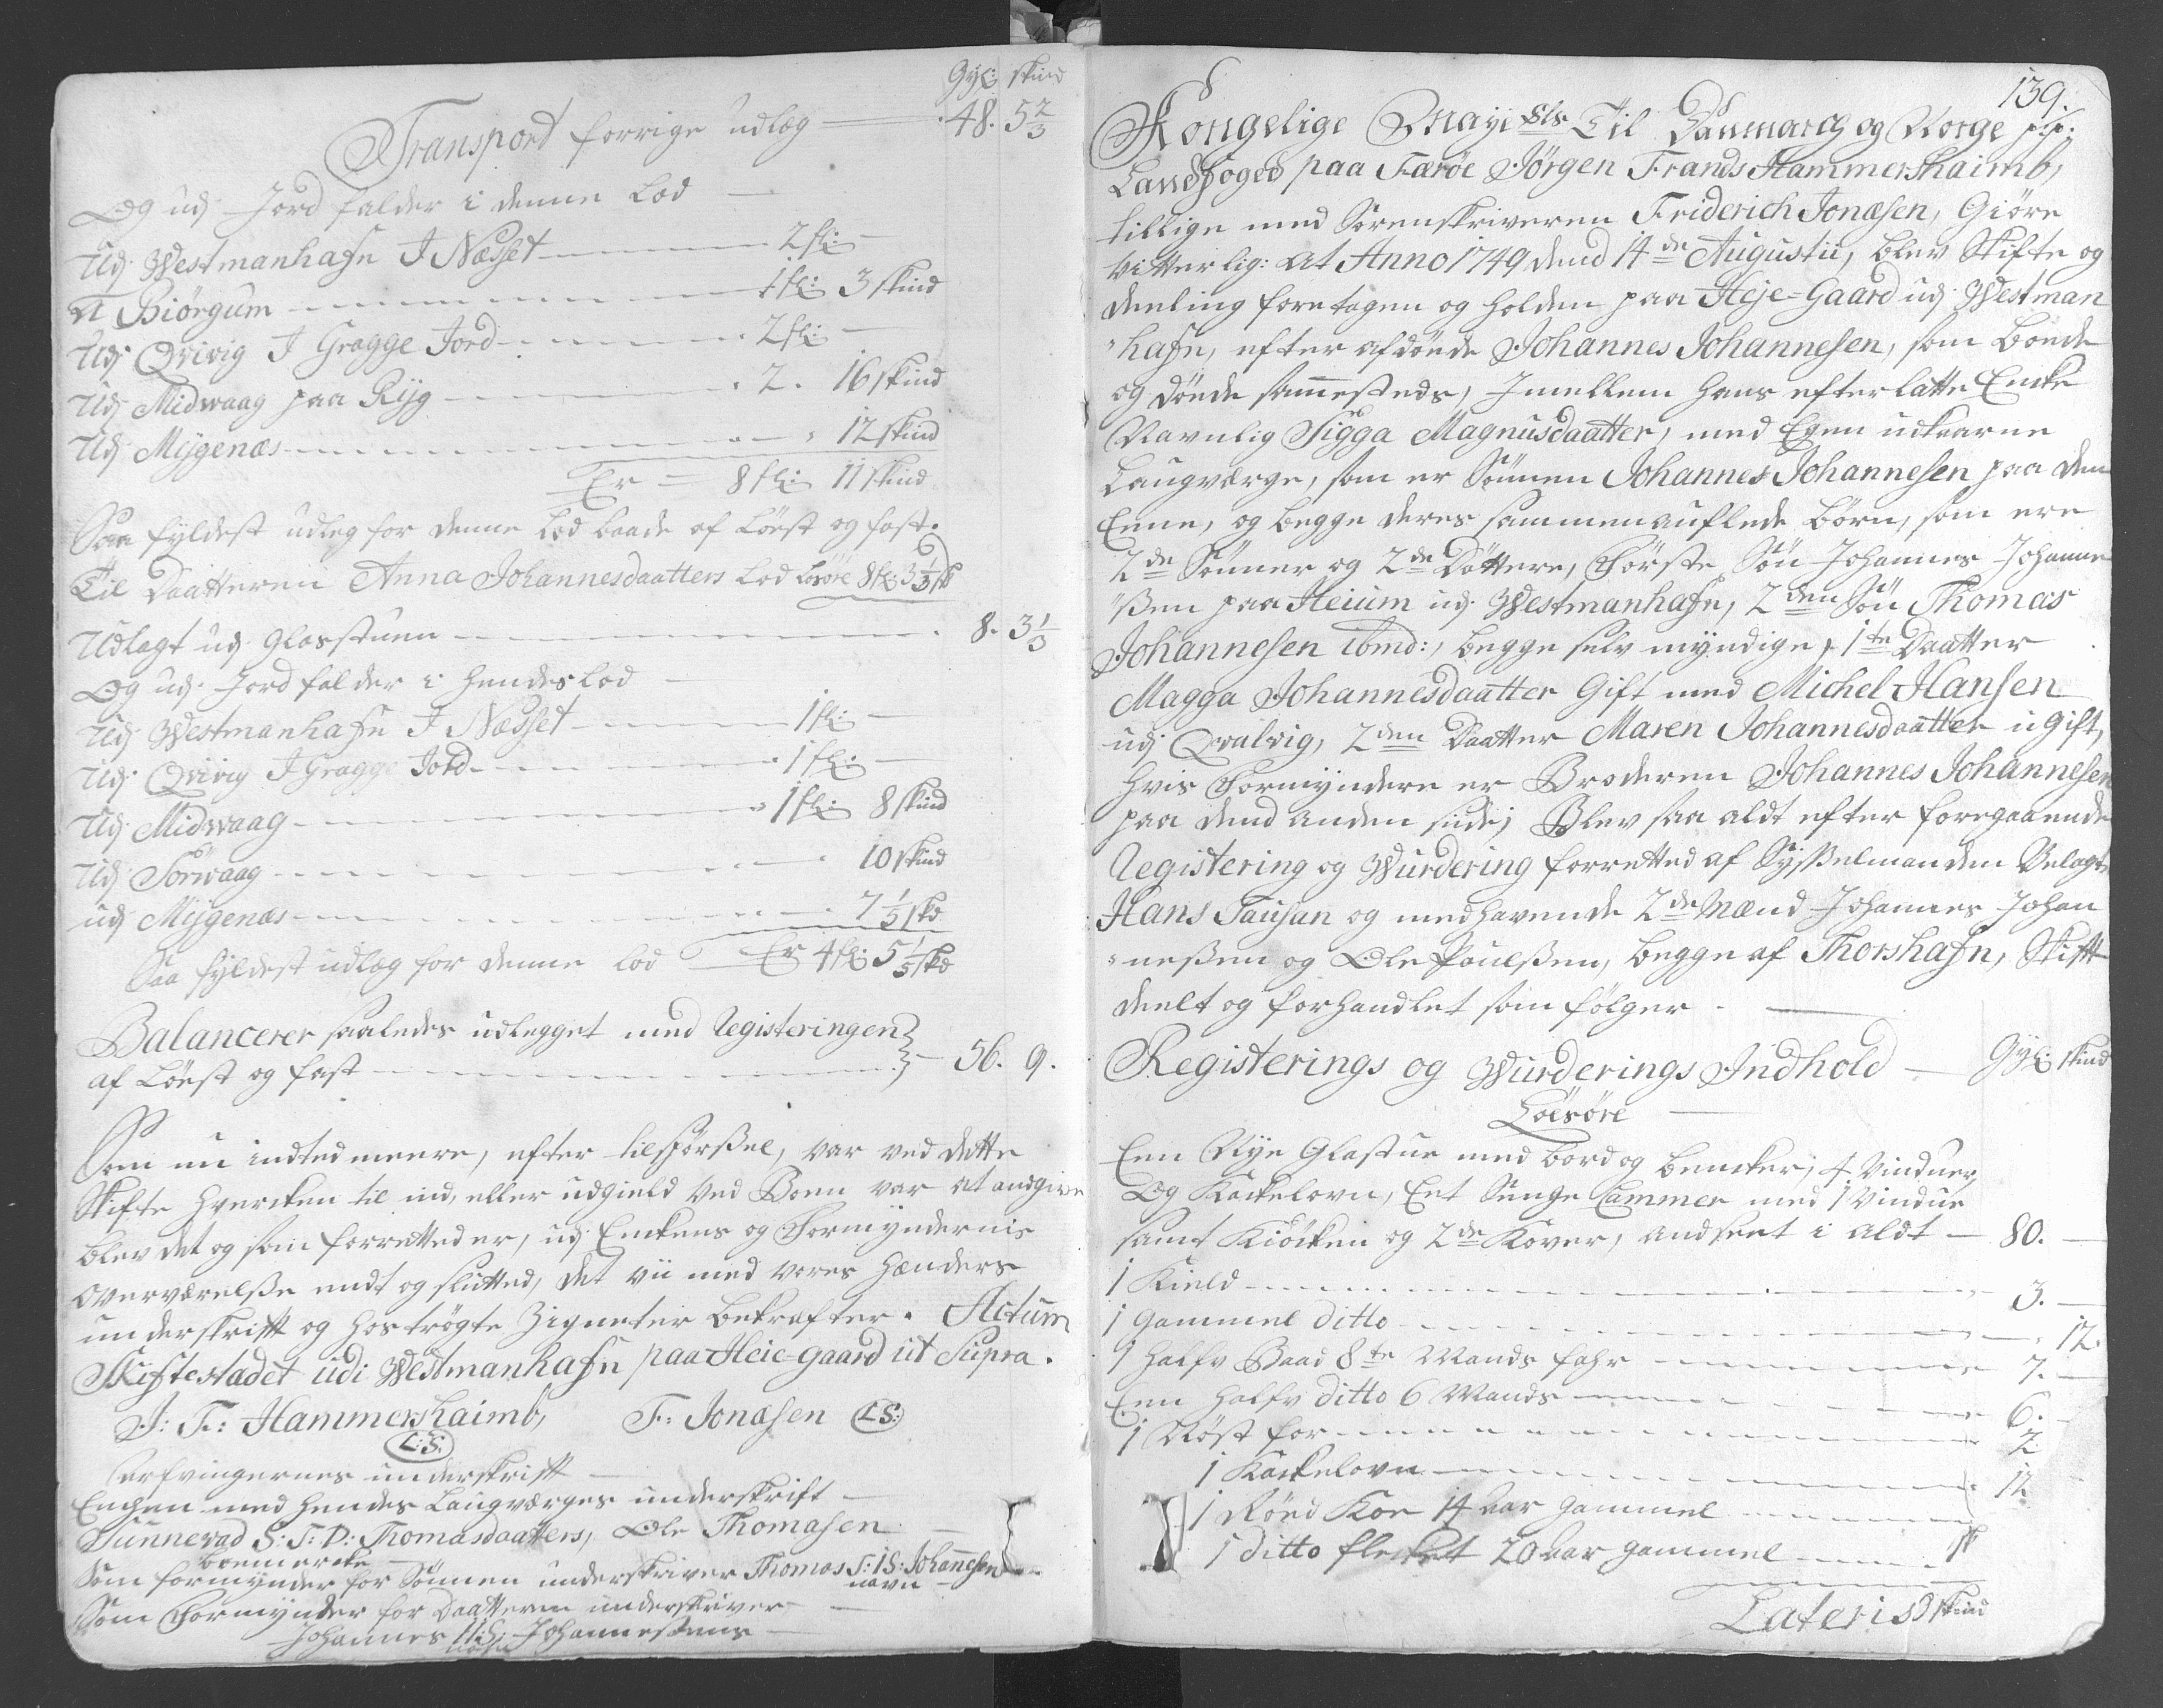 Gyl: skind
Transport forrige udlæg 48. 5 2/3
Og udj Jord falder i denne Lod
Udj Westmanhafn I Næsset 2 fl:
A Biörgum 1 fl: 3 skind
Udj Qvivig I Gragge Jord 2 fl:
Udj Midwaag paa Ryg 2. 16 skind
Udj Mygenæs 12 skind
Er 8 fl: 11 skind
Saa fyldest udleg for denne Lod baade af Löest og fast.
Til Daatteren Anna Johannesdaatters Lod Lösöre 8 fl: 3 1/3 sk
Udlagt udj Glasstuen 8. 3 1/3
Og udj Jord falder i hendes Lod
Udj Westmanhafn I Næsset 1 fl:
Udj Qvivig I Gragge Jord 1 fl:
Udj Midwaag 1 fl: 8 skind
Udj Sörwaag 10 skind
udj Mygenæs 7 1/5 skd
Saa fyldest udlæg for denne Lod Er 4 fl: 5 1/5 skd
Balancerer saaledes udlegget med Registeringen
af Löest og fast 56. 9.
Som nu indted meere, efter tilspörßel, var ved dette
Skifte hvercken til ind, eller udgield ved Boen var at andgive
blev det og som forretted er, udj Enckens og Formyndernis
overværelße endt og slutted, det vii med vores hænders
underskrifft og hoströgte Zigneter bekræfter. Actum
Skiftestadet udi Westmanhafn paa Heie-gaard ut Supra.
J: F: Hammershaimb, F: Jonæsen (LS:)
(L:S:)
Arfvingernes underskrifft
Enchen med hendes Laugværges underskrift
Sunnevad S: T: D: Thomasdaatters, Ole Thomasen
boemercke
Som formynder for Sönnen underskriver Thomas T: I S: Johannesen
navn
Som Formynder for Daatteren underskriver
Johannes I I: S: Johannesens
nafn
139.
Kongelige Mayi sts Til Danmarcg og Norge pp:
Landfoged paa Færöe Jörgen Frands Hammershaimb,
tillige med Sorenskriveren Friderich Jonæsen, Giöre
vitterlig: At Anno 1749 dend 14de Augustii, blev Skifte og
deeling foretagen og holden paa Heje-Gaard udj Westman
"hafn, efter afdöede Johannes Johannesen, som boede
og döede sammesteds, Imellem hans efterlatte Encke
Navnlig Sigga Magnusdaatter, med Egen udkaarne
Laugværge, som er Sönnen Johannes Johannesen paa den
Eene, og begge deres sammenauflede börn, som ere
2de Sönner og 2de Döttere, Förste Sön Johannes Johanne
"ßen paa Heium udj Westmanhafn, 2den Sön Thomas
Johannesen ibmd:, begge selv myndige, 1te Daatter
Magga Johannesdaatter Gift med Michel Hansen
udj Qvalvig, 2den Daatter Maren Johannesdaatter ugift,
hvis Formyndere er Broderen Johannes Johannesen
paa dend anden siide; Blev saa aldt efter foregaaende
Registering og Wurdering forretted af Sysselmanden Velagte
Hans Tausan og medhavende 2de Mænd Johannes Johan
"neßen og Ole Poulßen, begge af Thorshafn, Skifft
deelt og forhandlet som fölger
Registerings og Wurderings Indhold Gyl: skind
Löesöre
Een Nye Glastue med bord og bencker, 4 vinduer,
Og Kackelovn, Eet Senge Cammer med 1 vindue
samt Kiöcken og 2de Kover, andseet i aldt 80.
1 Kield 3.
1 Gammel ditto 12.
1 halfv Baad 8te Mands fahr 7.
Een halfv ditto 6 Mands 6.
1 Nöst for 2
1 Kackelovn 12
1 Röed Koe 14 aar gammel
1 ditto flecket 20 aar gammel
Lateris skind